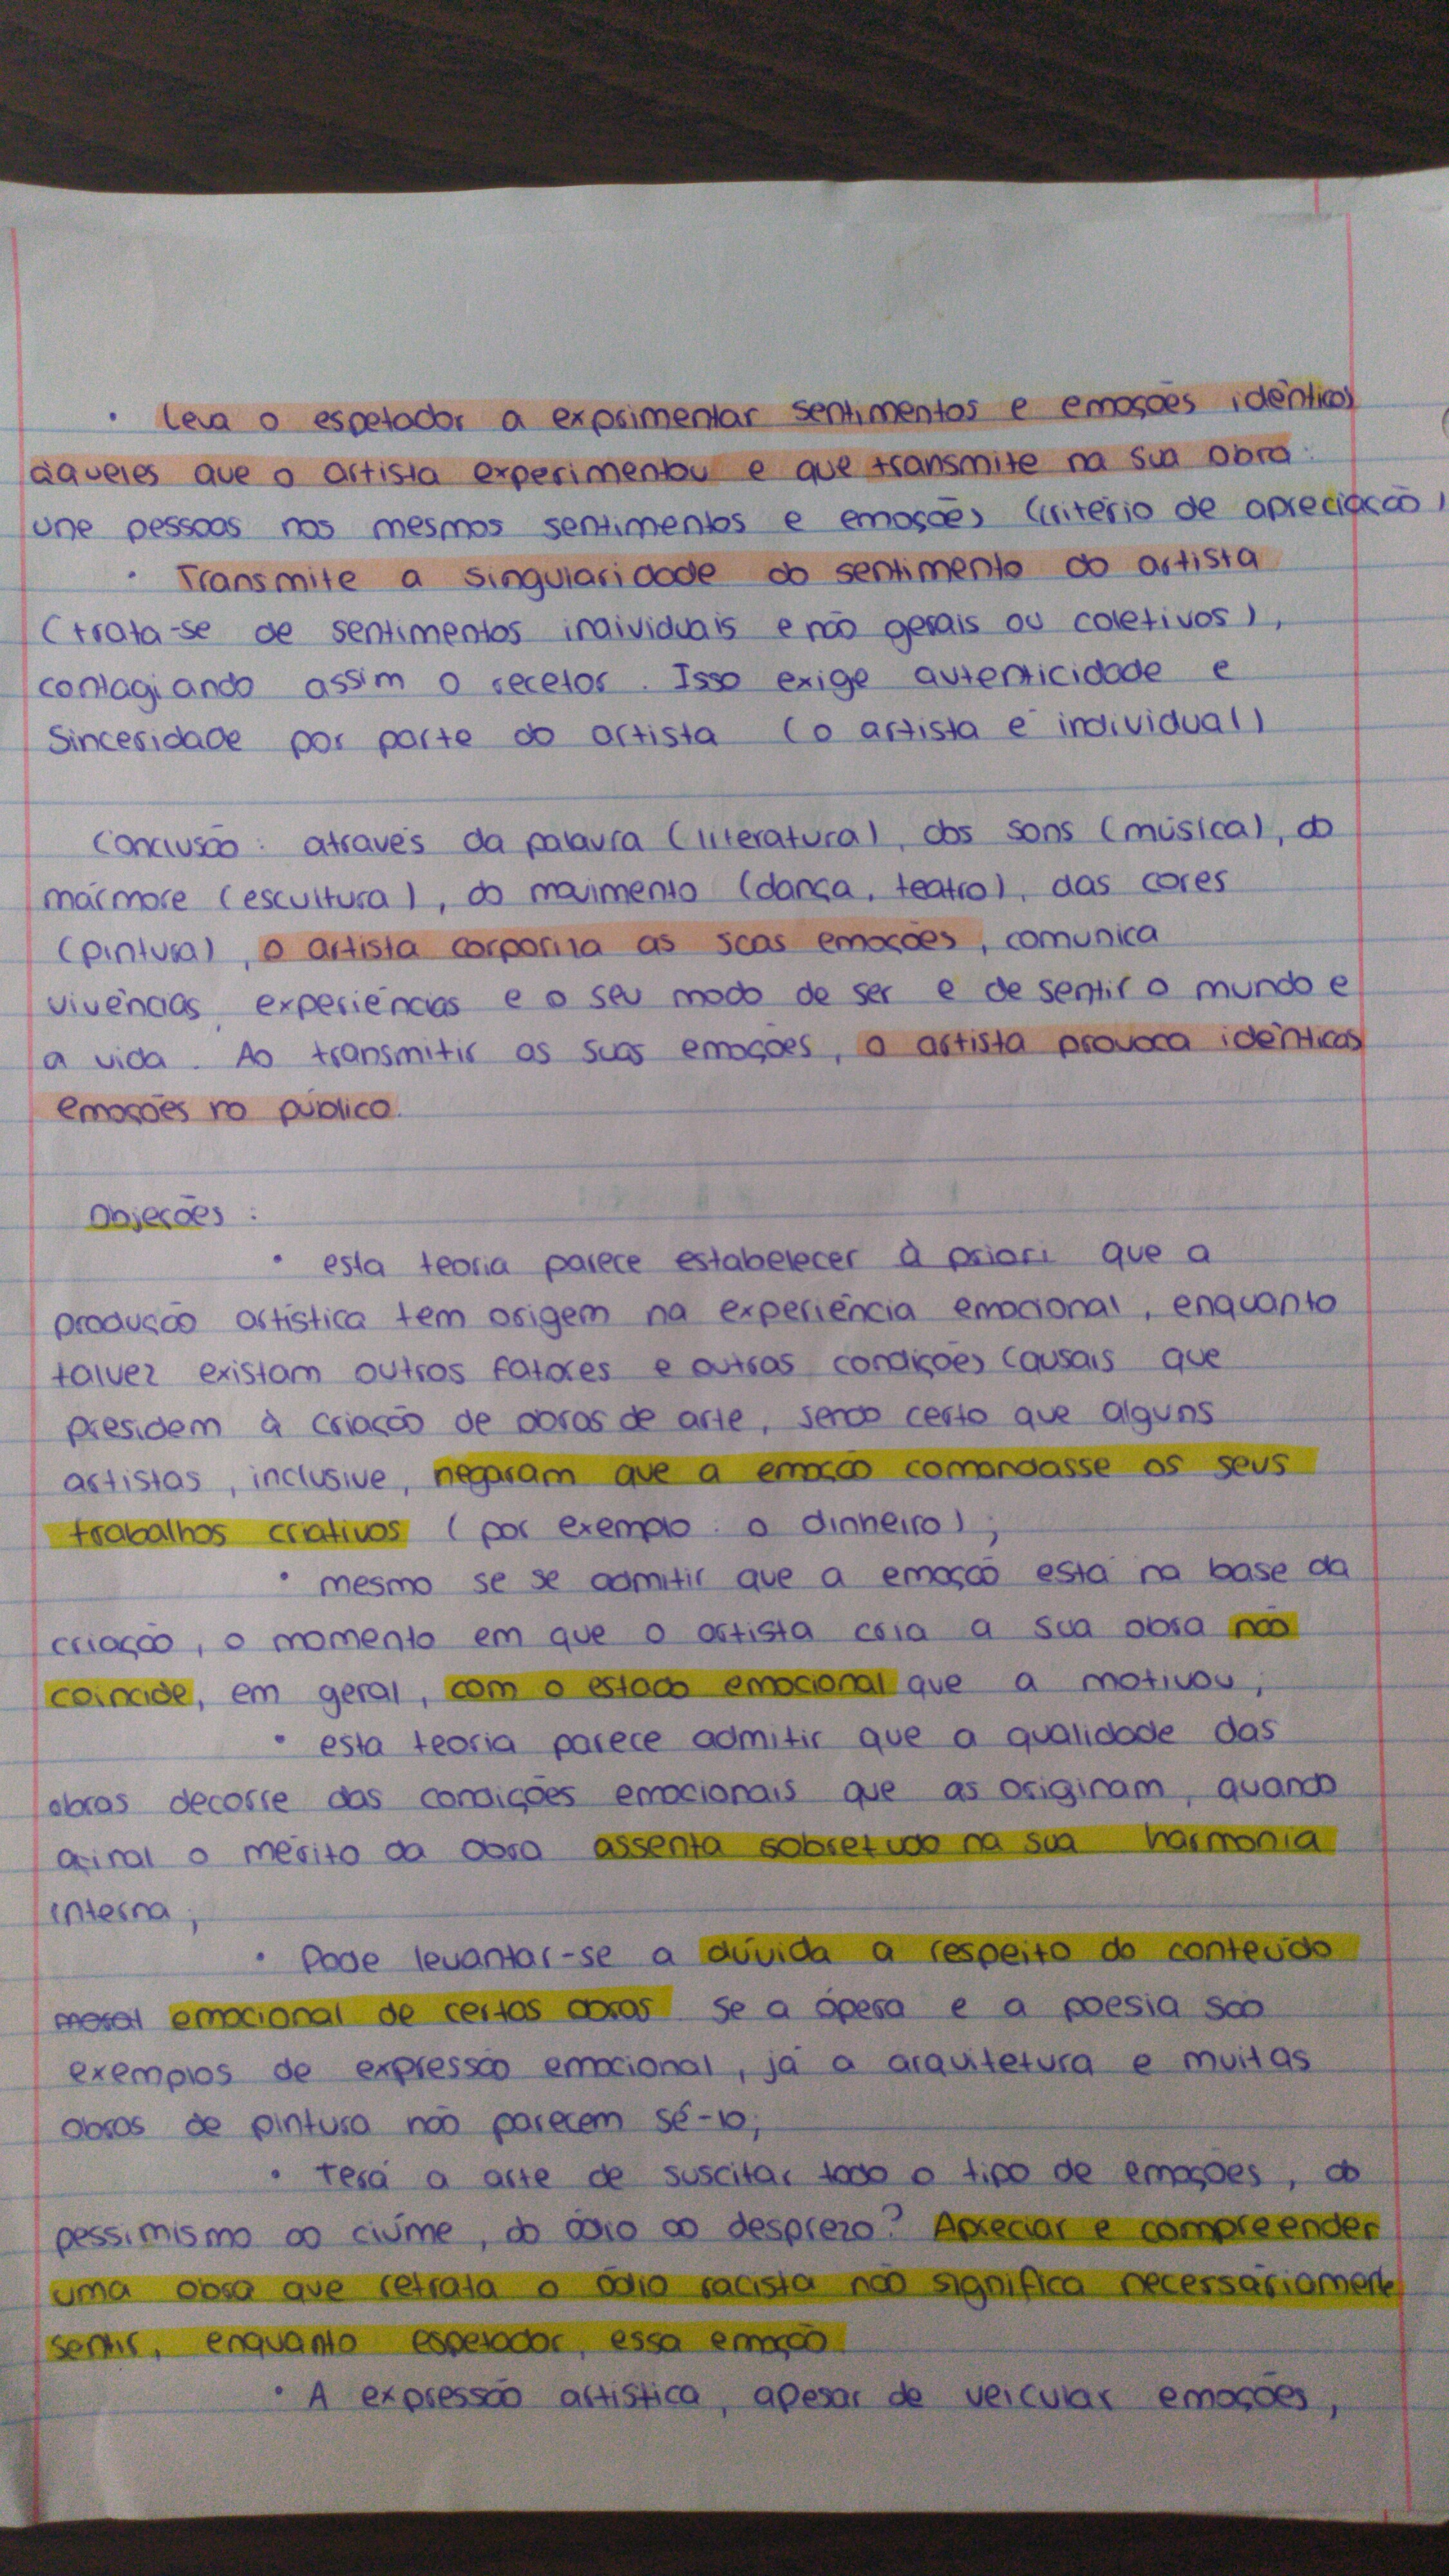 • Leva o espetador a exprimentar sentimentos e emoções idênticos
àqueles que o artista experimentou e que transmite na sua obra:
une pessoas nos mesmos sentimentos e emoções (critério de apreciação)
• Transmite a singularidade do sentimento do artista
(trata-se de sentimentos individuais e não gerais ou coletivos),
contagiando assim o recetor. Isso exige autenticidade e
sinceridade por parte do artista (o artista é individual)
Conclusão: através da palavra (literatura), dos sons (música), do
mármore (escultura), do movimento (dança, teatro), das cores
(pintura), o artista corporiza as suas emoções, comunica
vivências, experiências e o seu modo de ser e de sentir o mundo e
a vida. Ao transmitir as suas emoções, o artista provoca idênticas
emoções no público.
Objeções:
• esta teoria parece estabelecer à priori que a
produção artística tem origem na experiência emocional, enquanto
talvez existam outros fatores e outras condições causais que
presidem à criação de obras de arte, sendo certo que alguns
artistas, inclusive, negaram que a emoção comandasse os seus
trabalhos criativos (por exemplo: o dinheiro);
• mesmo se se admitir que a emoção está na base da
criação, o momento em que o artista cria a sua obra não
coincide, em geral, com o estado emocional que a motivou;
• esta teoria parece admitir que a qualidade das
obras decorre das condições emocionais que as originam, quando
afinal o mérito da obra assenta sobretudo na sua harmonia
interna;
• Pode levantar-se a dúvida a respeito do conteúdo
moral emocional de certas obras se a ópera e a poesia são
exemplos de expressão emocional, já a arquitetura e muitas
obras de pintura não parecem sê-lo;
• Terá a arte de suscitar todo o tipo de emoções, do
pessimismo ao ciúme, do ódio ao desprezo? Apreciar e compreender
uma obra que retrata o ódio racista não significa necessáriamente
sentir, enquanto espetador, essa emoção
• A expressão artística, apesar de veicular emoções,